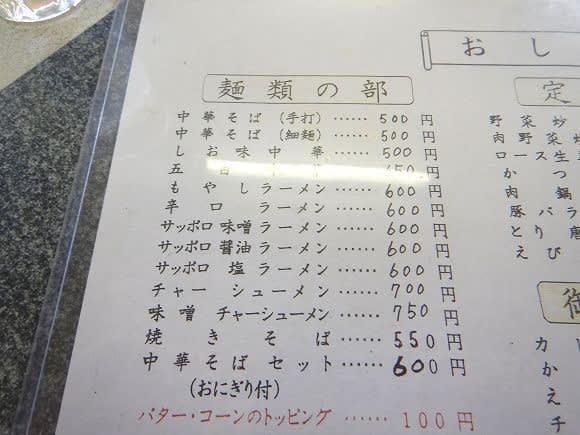 おし
麺類の部
中華そば(手打)……500円
中華そば(細麺)……500円
しお味中華……500円
五目……650円
もやしラーメン……600円
辛口ラーメン……600円
サッポロ味噌ラーメン……600円
サッポロ醤油ラーメン……600円
サッポロ塩ラーメン……600円
チャーシューメン……700円
味噌チャーシューメン……750円
焼きそば……550円
中華そばセット……600円
(おにぎり付)
バター・コーンのトッピング……100円
定
野菜炒
肉野菜炒
ロース生
かつ
肉鍋
豚バラ
とり唐
えび
御
カ
かえ
チ